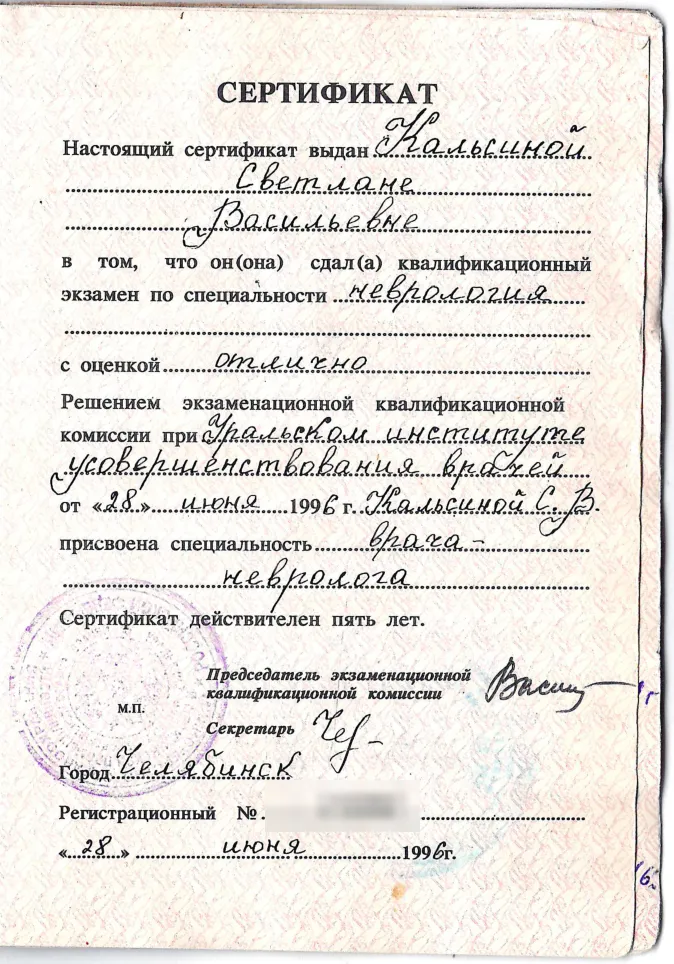 СЕРТИФИКАТ
Настоящий сертификат выдан Кальсиной
Светлане
Васильевне
в том, что он(она) сдал(а) квалификационный
экзамен по специальности неврология
с оценкой отлично
Решением экзаменационной квалификационной
комиссии при Уральском институте
усовершенствования врачей
от «28» июня 1996 г. Кальсиной С. В.
присвоена специальность врача-
невролога
Сертификат действителен пять лет.
Председатель экзаменационной
квалификационной комиссии
м.п.
Секретарь
Город Челябинск
Регистрационный №
«28» июня 1996г.